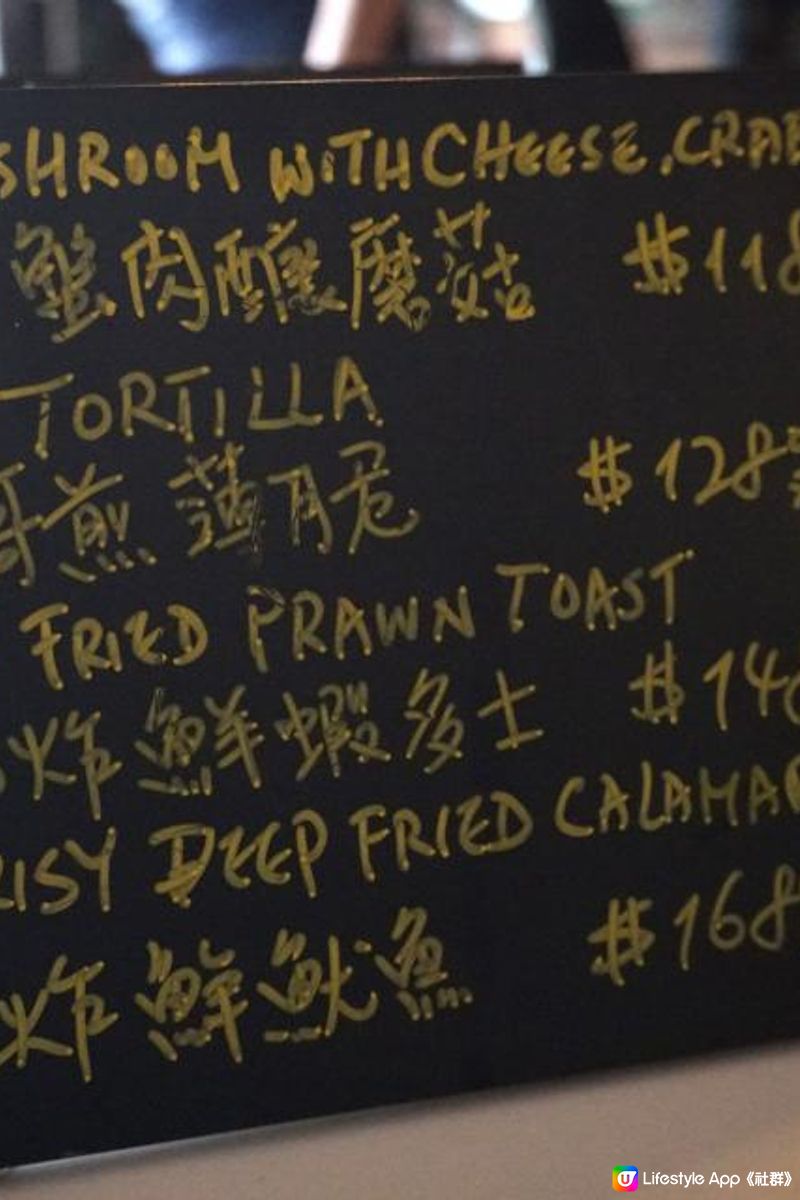 SHROOM WITH CHEESE, CRAB
蟹肉釀蘑菇 $118
TORTILLA
哥煎薄脆 $128
FRIED PRAWN TOAST
炸鮮蝦多士 $14
RISY DEEP FRIED CALAMA
炸鮮魷魚 $168
Lifestyle App《社群》